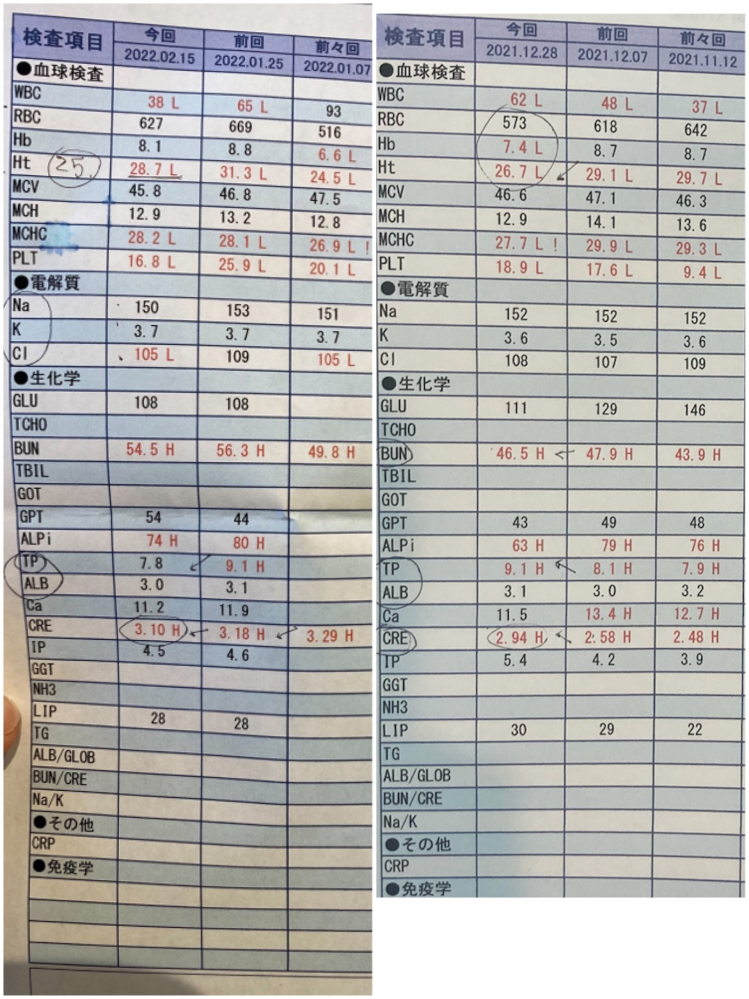 検査項目 今回 前回 前々回
2022.02.15 2022.01.25 2022.01.07
●血球検査
WBC 38 L 65 L 93
RBC 627 669 516
Hb 8.1 8.8 6.6 L
Ht 25. 28.7 L 31.3 L 24.5 L
MCV 45.8 46.8 47.5
MCH 12.9 13.2 12.8
MCHC 28.2 L 28.1 L 26.9 L !
PLT 16.8 L 25.9 L 20.1 L
●電解質
Na 150 153 151
K 3.7 3.7 3.7
Cl 105 L 109 105 L
●生化学
GLU 108 108
TCHO
BUN 54.5 H 56.3 H 49.8 H
TBIL
GOT
GPT 54 44
ALPi 74 H 80 H
TP 7.8 9.1 H
ALB 3.0 3.1
Ca 11.2 11.9
CRE 3.10 H 3.18 H 3.29 H
IP 4.5 4.6
GGT
NH3
LIP 28 28
TG
ALB/GLOB
BUN/CRE
Na/K
●その他
CRP
●免疫学
検査項目 今回 前回 前々回
2021.12.28 2021.12.07 2021.11.12
●血球検査
WBC 62 L 48 L 37 L
RBC 573 618 642
Hb 7.4 L 8.7 8.7
Ht 26.7 L 29.1 L 29.7 L
MCV 46.6 47.1 46.3
MCH 12.9 14.1 13.6
MCHC 27.7 L ! 29.9 L 29.3 L
PLT 18.9 L 17.6 L 9.4 L
●電解質
Na 152 152 152
K 3.6 3.5 3.6
Cl 108 107 109
●生化学
GLU 111 129 146
TCHO
BUN 46.5 H 47.9 H 43.9 H
TBIL
GOT
GPT 43 49 48
ALPi 63 H 79 H 76 H
TP 9.1 H 8.1 H 7.9 H
ALB 3.1 3.0 3.2
Ca 11.5 13.4 H 12.7 H
CRE 2.94 H 2.58 H 2.48 H
IP 5.4 4.2 3.9
GGT
NH3
LIP 30 29 22
TG
ALB/GLOB
BUN/CRE
Na/K
●その他
CRP
●免疫学